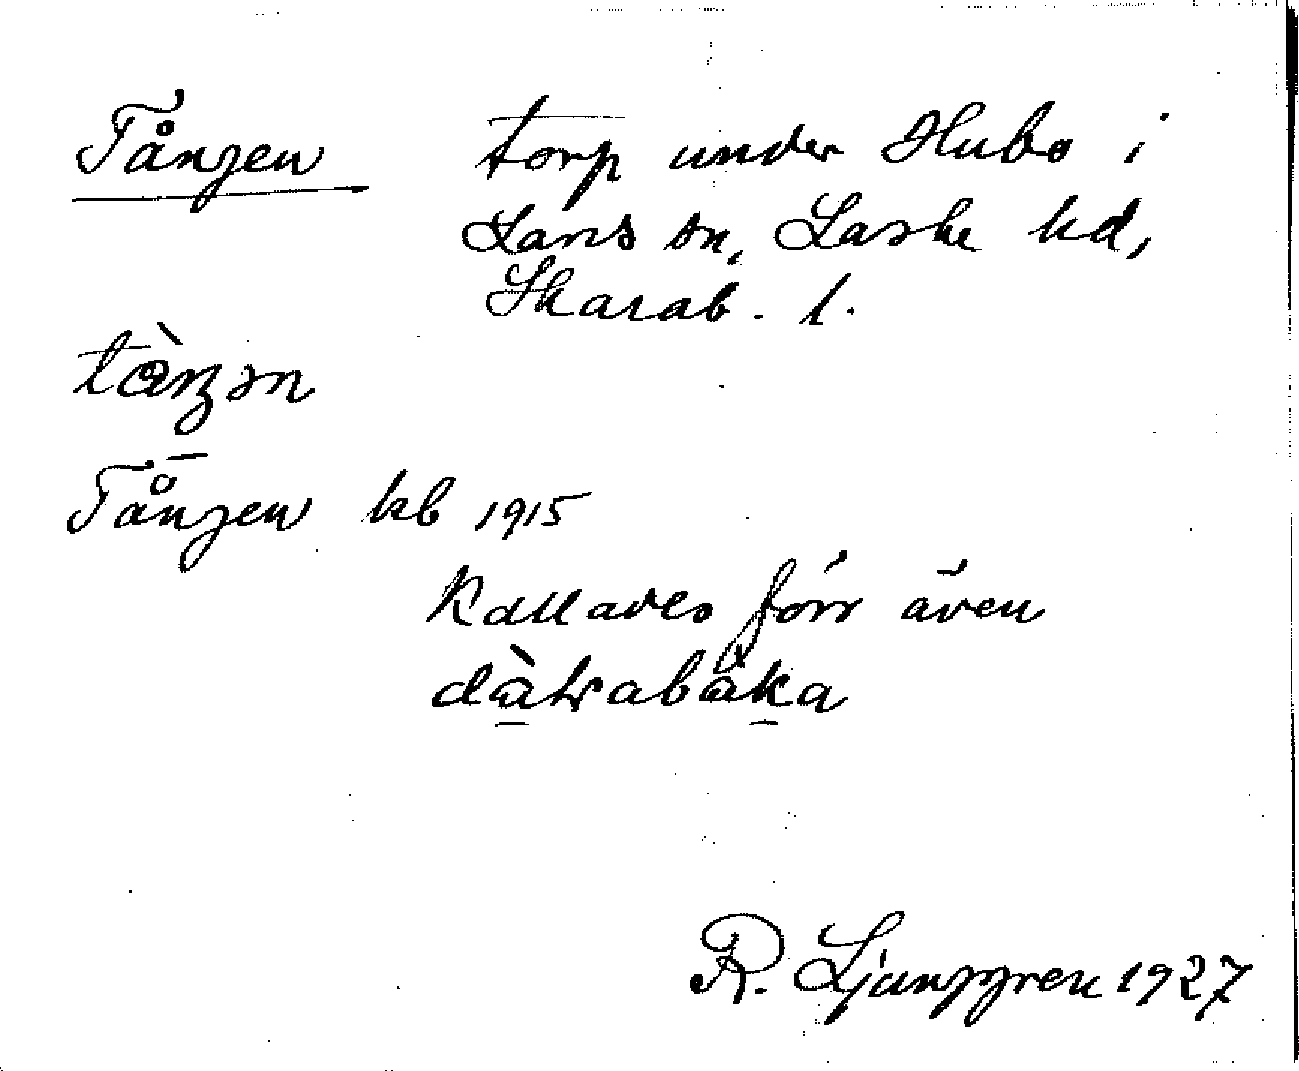 Tången torp under Hubo i
Lavs sn, Laske hd,
Skarab. l.
Tången kb 1915
Kallades förr även
R. Ljunggren 1927